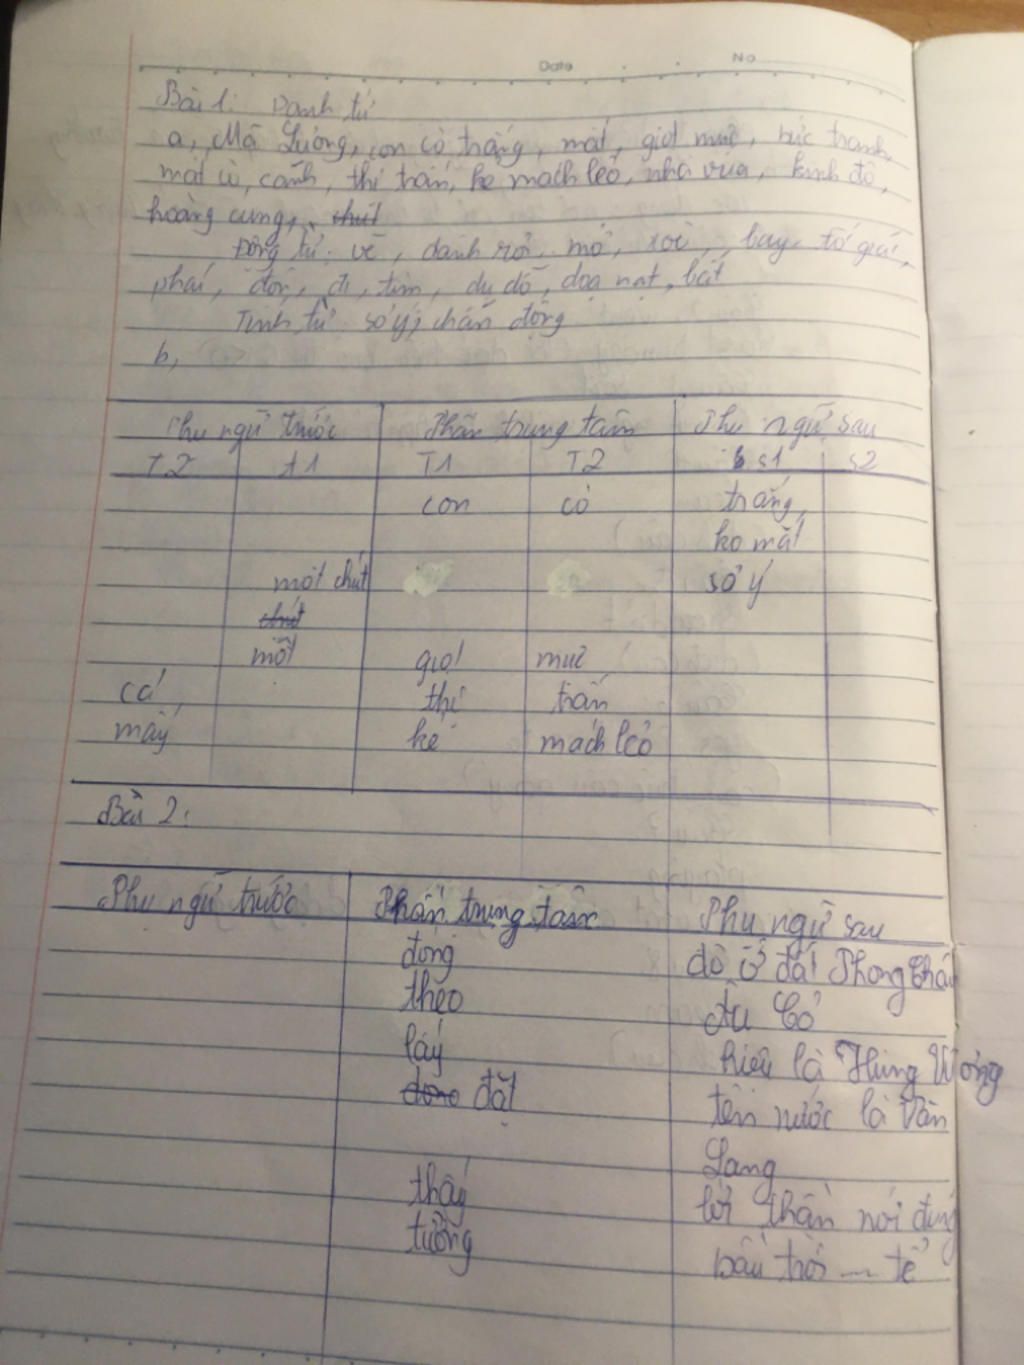 Date No
Bài 1: Danh từ
a, Mã Lương, con cò trắng, mắt, giọt mực, bức tranh,
mắt cò, cánh, thị trấn, kẻ mách lẻo, nhà vua, kinh đô,
hoàng cung, chút
Động từ: vẽ, đánh rơi, mở, xòe, bay, tố giác,
phái, đón, đi, tìm, dụ dỗ, dọa nạt, bắt
Tính từ: sơ ý, chấn động
b,
Phụ ngữ trước Phần trung tâm Phụ ngữ sau
T2 t1 T1 T2 s1 s2
con cò trắng,
ko mắt
một chút sơ ý
chút
một giọt mực
cả thị trấn
mấy kẻ mách lẻo
Bài 2:
Phụ ngữ trước Phần trung tâm Phụ ngữ sau
đóng đô ở đất Phong Châu
theo Âu Cơ
lấy hiệu là Hùng Vương
đóng đặt tên nước là Văn
Lang
thấy lời thần nói đúng
tượng bầu trời ... tế